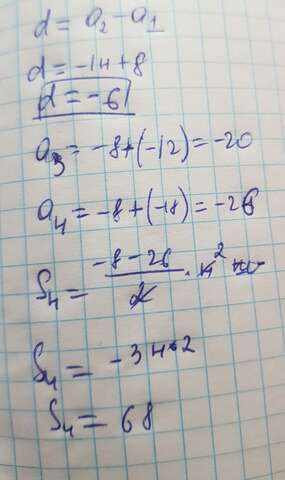 d = a₂ - a₁
d = -14+8
d = -6
a₃ = -8+(-12) = -20
a₄ = -8+(-18) = -26
S₄ = (-8-26)/2 · 4²
S₄ = -34·2
S₄ = 68